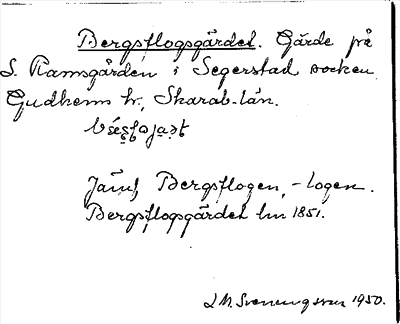 Bergsflogsgärdet. Gärde på
S. Ramsgården i Segerstad socken
Gudhems hr, Skarab. län.
Jämf Bergsflogen, -logen.
Bergsflogsgärdet lm 1851.
1950.